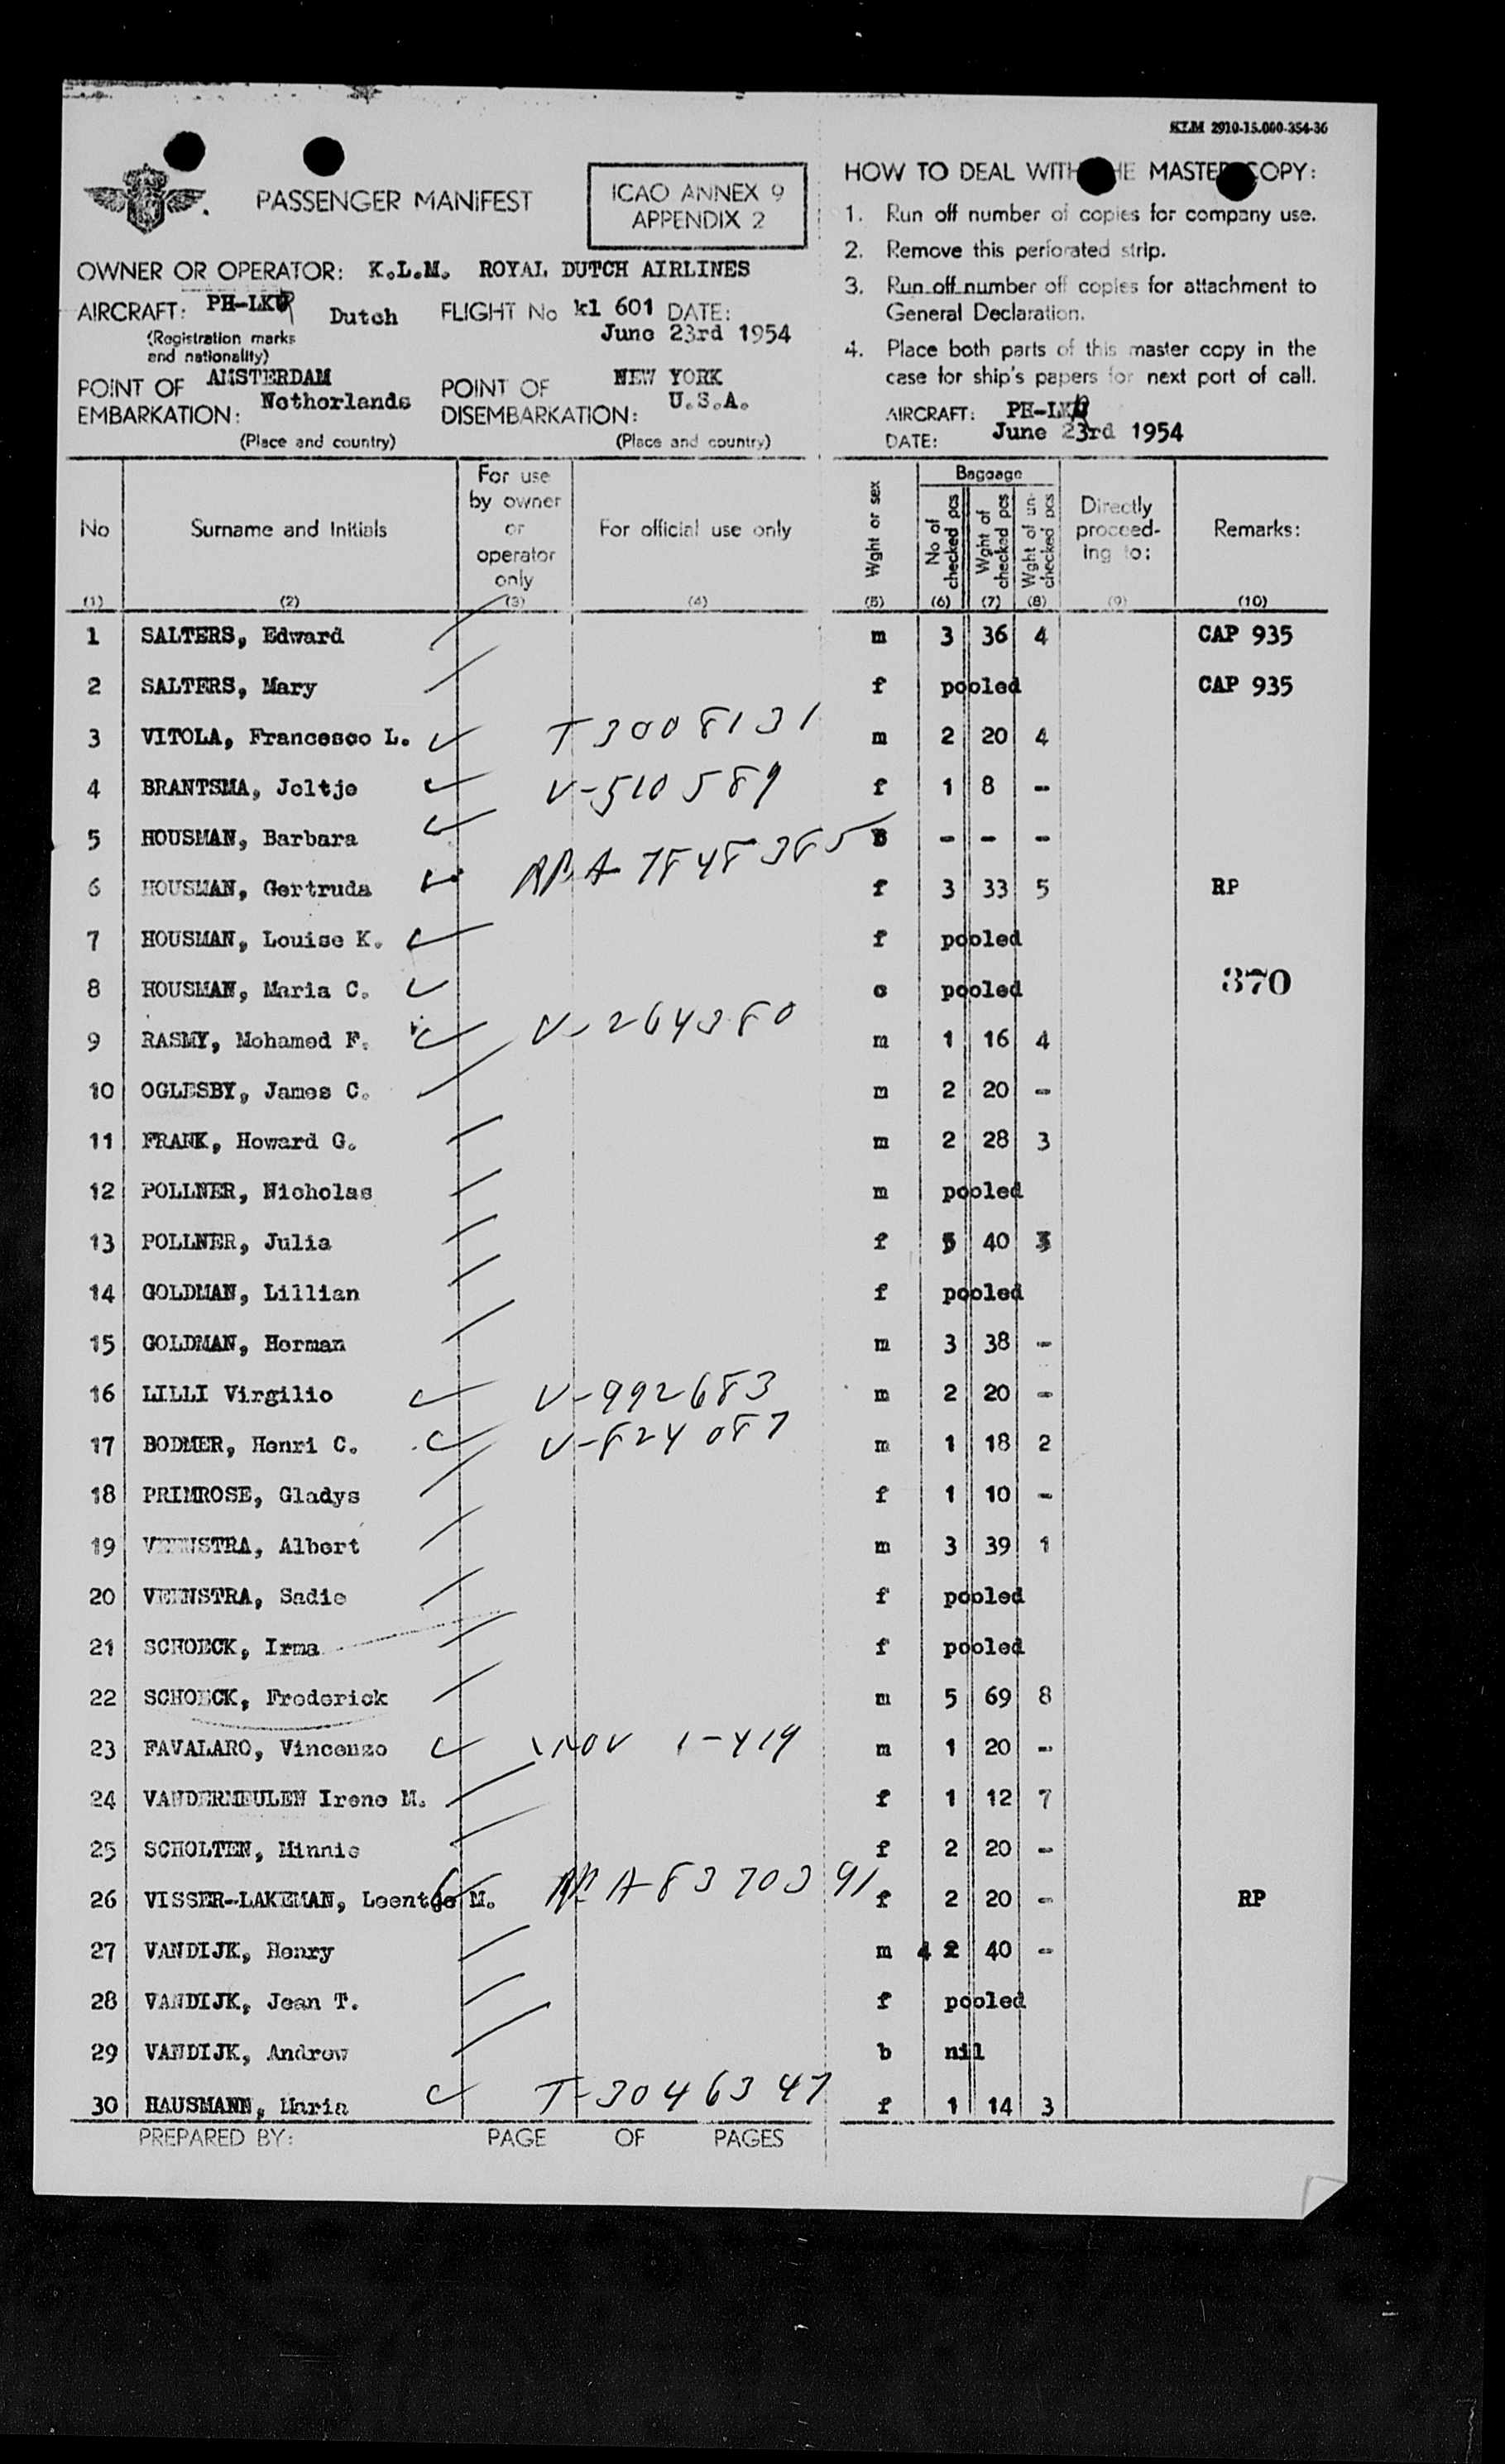 KLM 2910-15.000-354-36
PASSENGER MANIFEST
ICAO ANNEX 9
APPENDIX 2
OWNER OR OPERATOR: K.L.M. ROYAL DUTCH AIRLINES
AIRCRAFT: PH-LKR Dutch FLIGHT No kl 601 DATE: June 23rd 1954
(Registration marks
and nationality)
POINT OF EMBARKATION: AMSTERDAM Netherlands
POINT OF DISEMBARKATION: NEW YORK U.S.A.
(Place and country) (Place and country)
HOW TO DEAL WITH THE MASTER COPY:
1. Run off number of copies for company use.
2. Remove this perforated strip.
3. Run off number off copies for attachment to
General Declaration.
4. Place both parts of this master copy in the
case for ship's papers for next port of call.
AIRCRAFT: PH-LKR
DATE: June 23rd 1954
No Surname and Initials For use by owner or operator only For official use only Wght or sex Baggage No of checked pcs Wght of checked pcs Wght of un-checked pcs Directly proceed-ing to: Remarks:
(1) (2) (3) (4) (5) (6) (7) (8) (9) (10)
1 SALTERS, Edward m 3 36 4 CAP 935
2 SALTERS, Mary f pooled CAP 935
3 VITOLA, Francesco L. T-3008131 m 2 20 4
4 BRANTSMA, Jeltje V-510589 f 1 8 -
5 HOUSMAN, Barbara B - - -
6 HOUSMAN, Gertruda A 7848385 f 3 33 5 RP
7 HOUSMAN, Louise K. f pooled
8 HOUSMAN, Maria C. c pooled
370
9 RASMY, Mohamed F. V-264380 m 1 16 4
10 OGLESBY, James C. m 2 20 -
11 FRANK, Howard G. m 2 28 3
12 POLLNER, Nicholas m pooled
13 POLLNER, Julia f 5 40 3
14 GOLDMAN, Lillian f pooled
15 GOLDMAN, Herman m 3 38 -
16 LILLI Virgilio V-992683 m 2 20 -
17 BODMER, Henri C. V-824087 m 1 18 2
18 PRIMROSE, Gladys f 1 10 -
19 VEENSTRA, Albert m 3 39 1
20 VEENSTRA, Sadie f pooled
21 SCHOECK, Irma f pooled
22 SCHOECK, Frederick m 5 69 8
23 FAVALARO, Vincenzo 1-419 m 1 20 -
24 VANDERMEULEN Irene M. f 1 12 7
25 SCHOLTEN, Minnie f 2 20 -
26 VISSER-LAKEMAN, Leentje M. A-8370391 f 2 20 - RP
27 VANDIJK, Henry m 4 2 40 -
28 VANDIJK, Jean T. f pooled
29 VANDIJK, Andrew b nil
30 HAUSMANN, Maria T-3046347 f 1 14 3
PREPARED BY: PAGE OF PAGES